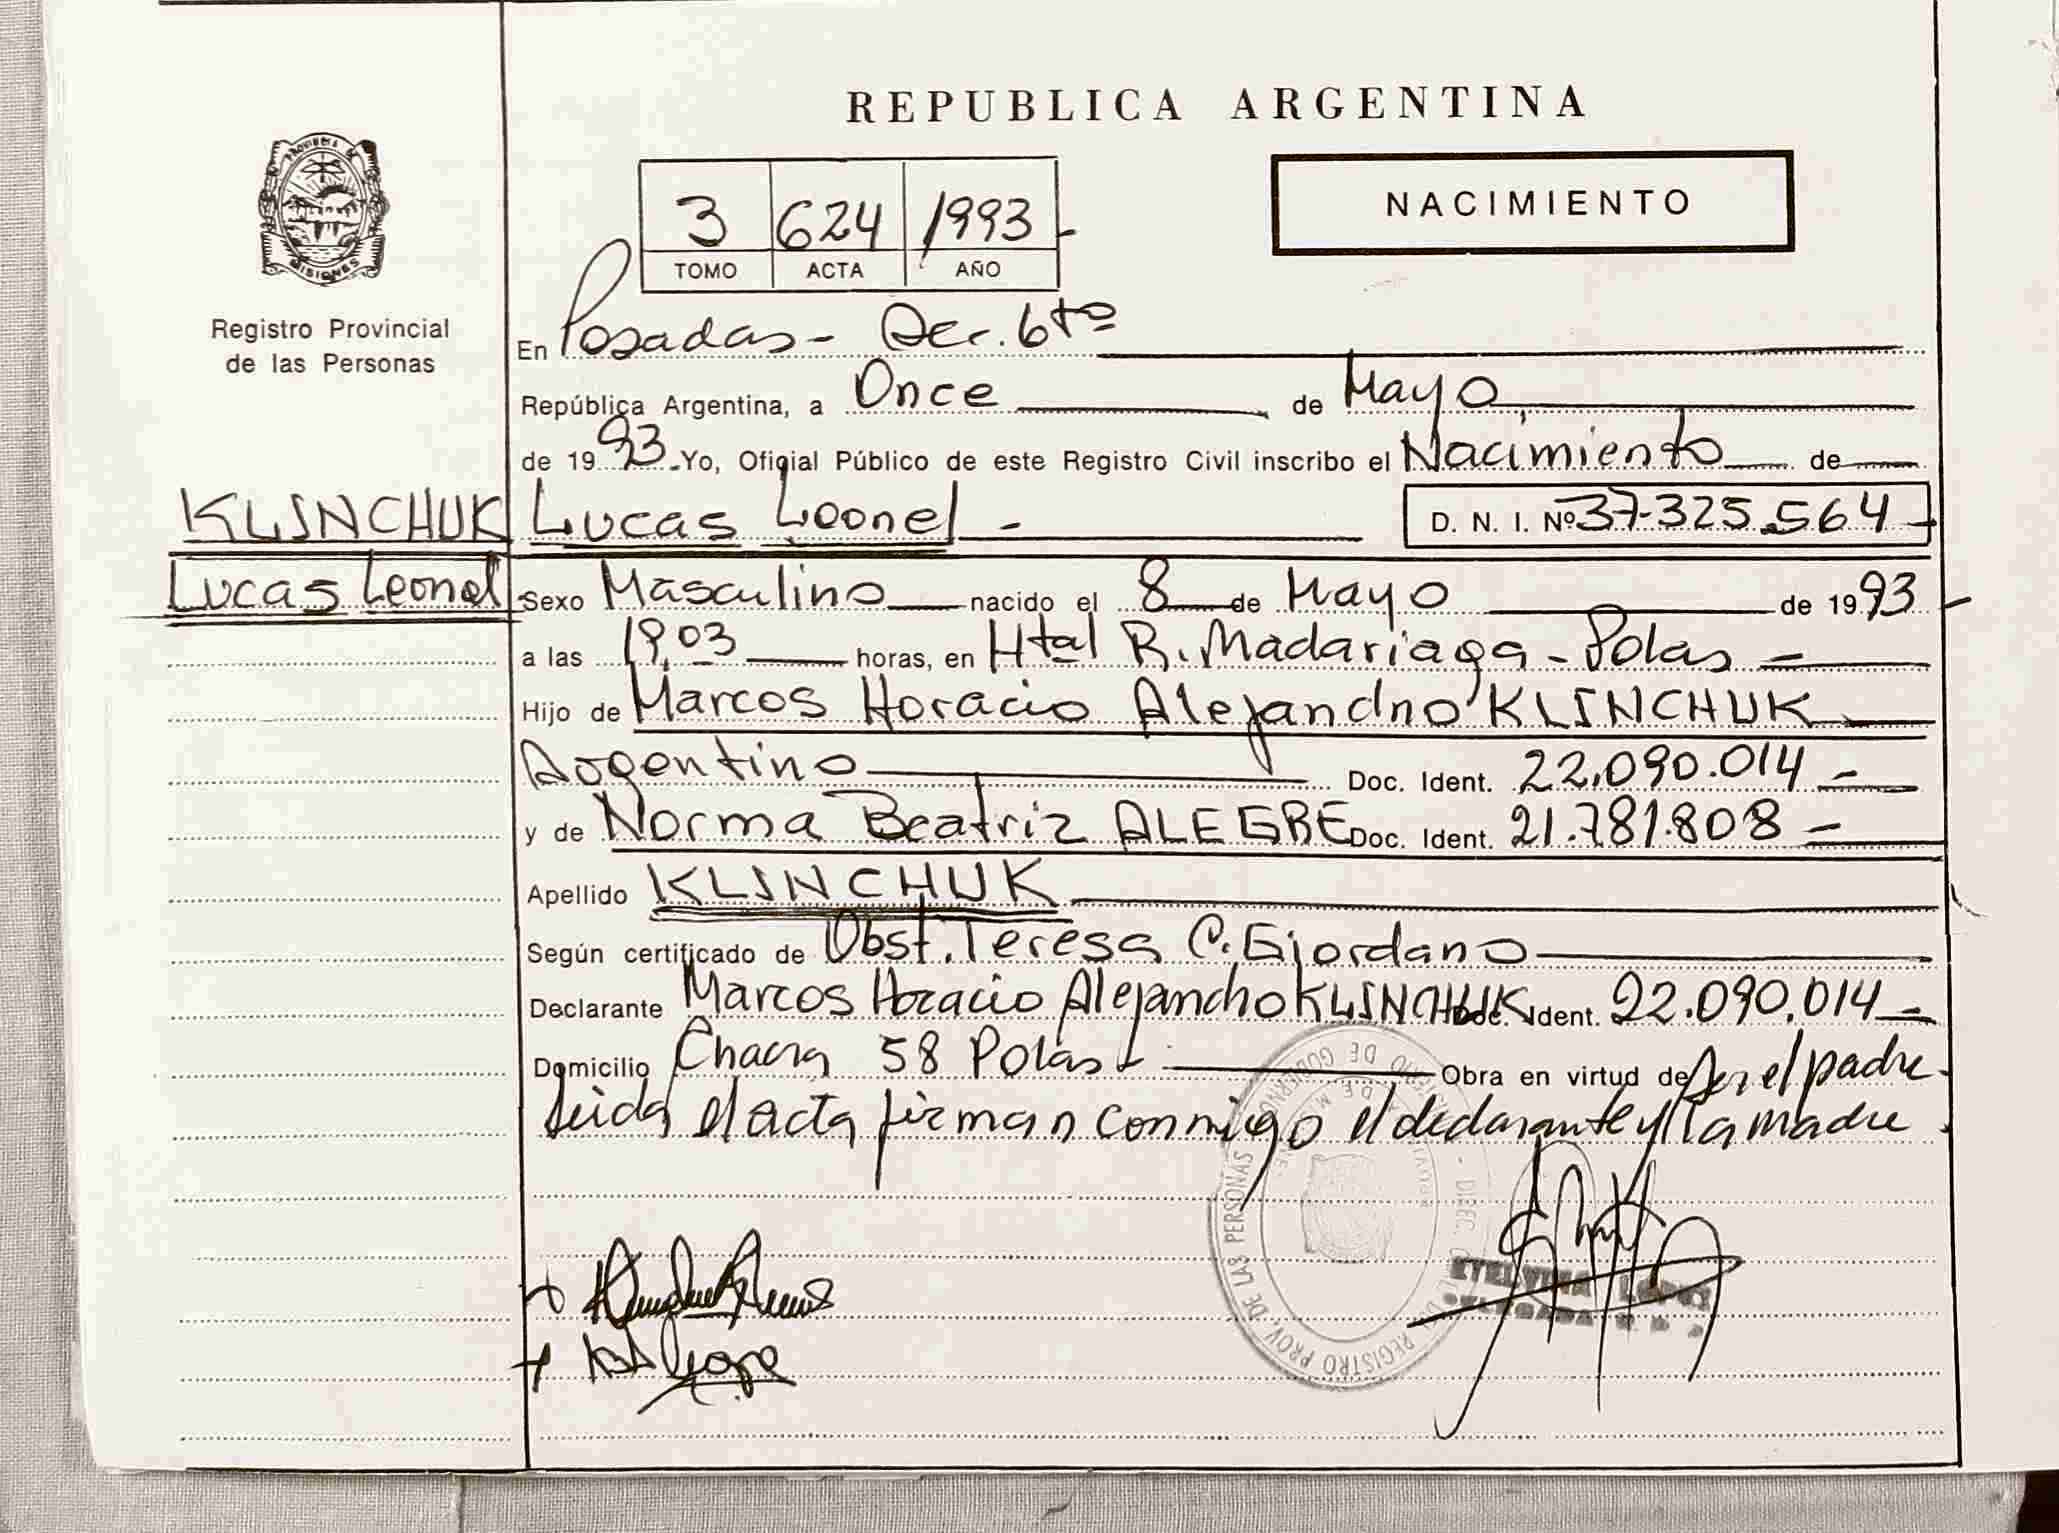 REPUBLICA ARGENTINA
PROVINCIA DE MISIONES
Registro Provincial
de las Personas
3 624 1993
TOMO ACTA AÑO
NACIMIENTO
En Posadas - Sec. 6ta
República Argentina, a Once de Mayo
de 1993 Yo, Oficial Público de este Registro Civil inscribo el Nacimiento de
KLINCHUK Lucas Leonel - D. N. I. Nº 37.325.564
Lucas Leonel
Sexo Masculino nacido el 8 de Mayo de 1993
a las 19,03 horas, en Htal R. Madariaga - Pdas
Hijo de Marcos Horacio Alejandro KLINCHUK
Argentino Doc. Ident. 22.090.014
y de Norma Beatriz ALEGRE Doc. Ident. 21.781.808
Apellido KLINCHUK
Según certificado de Obst. Teresa C. Giordano
Declarante Marcos Horacio Alejandro KLINCHUK Doc. Ident. 22.090.014
Domicilio Chacra 58 Pdas Obra en virtud de Ser el padre.
Leida el acta firman conmigo el declarante y la madre.
REGISTRO PROV. DE LAS PERSONAS
ETELVINA LOPEZ
DELEGADA